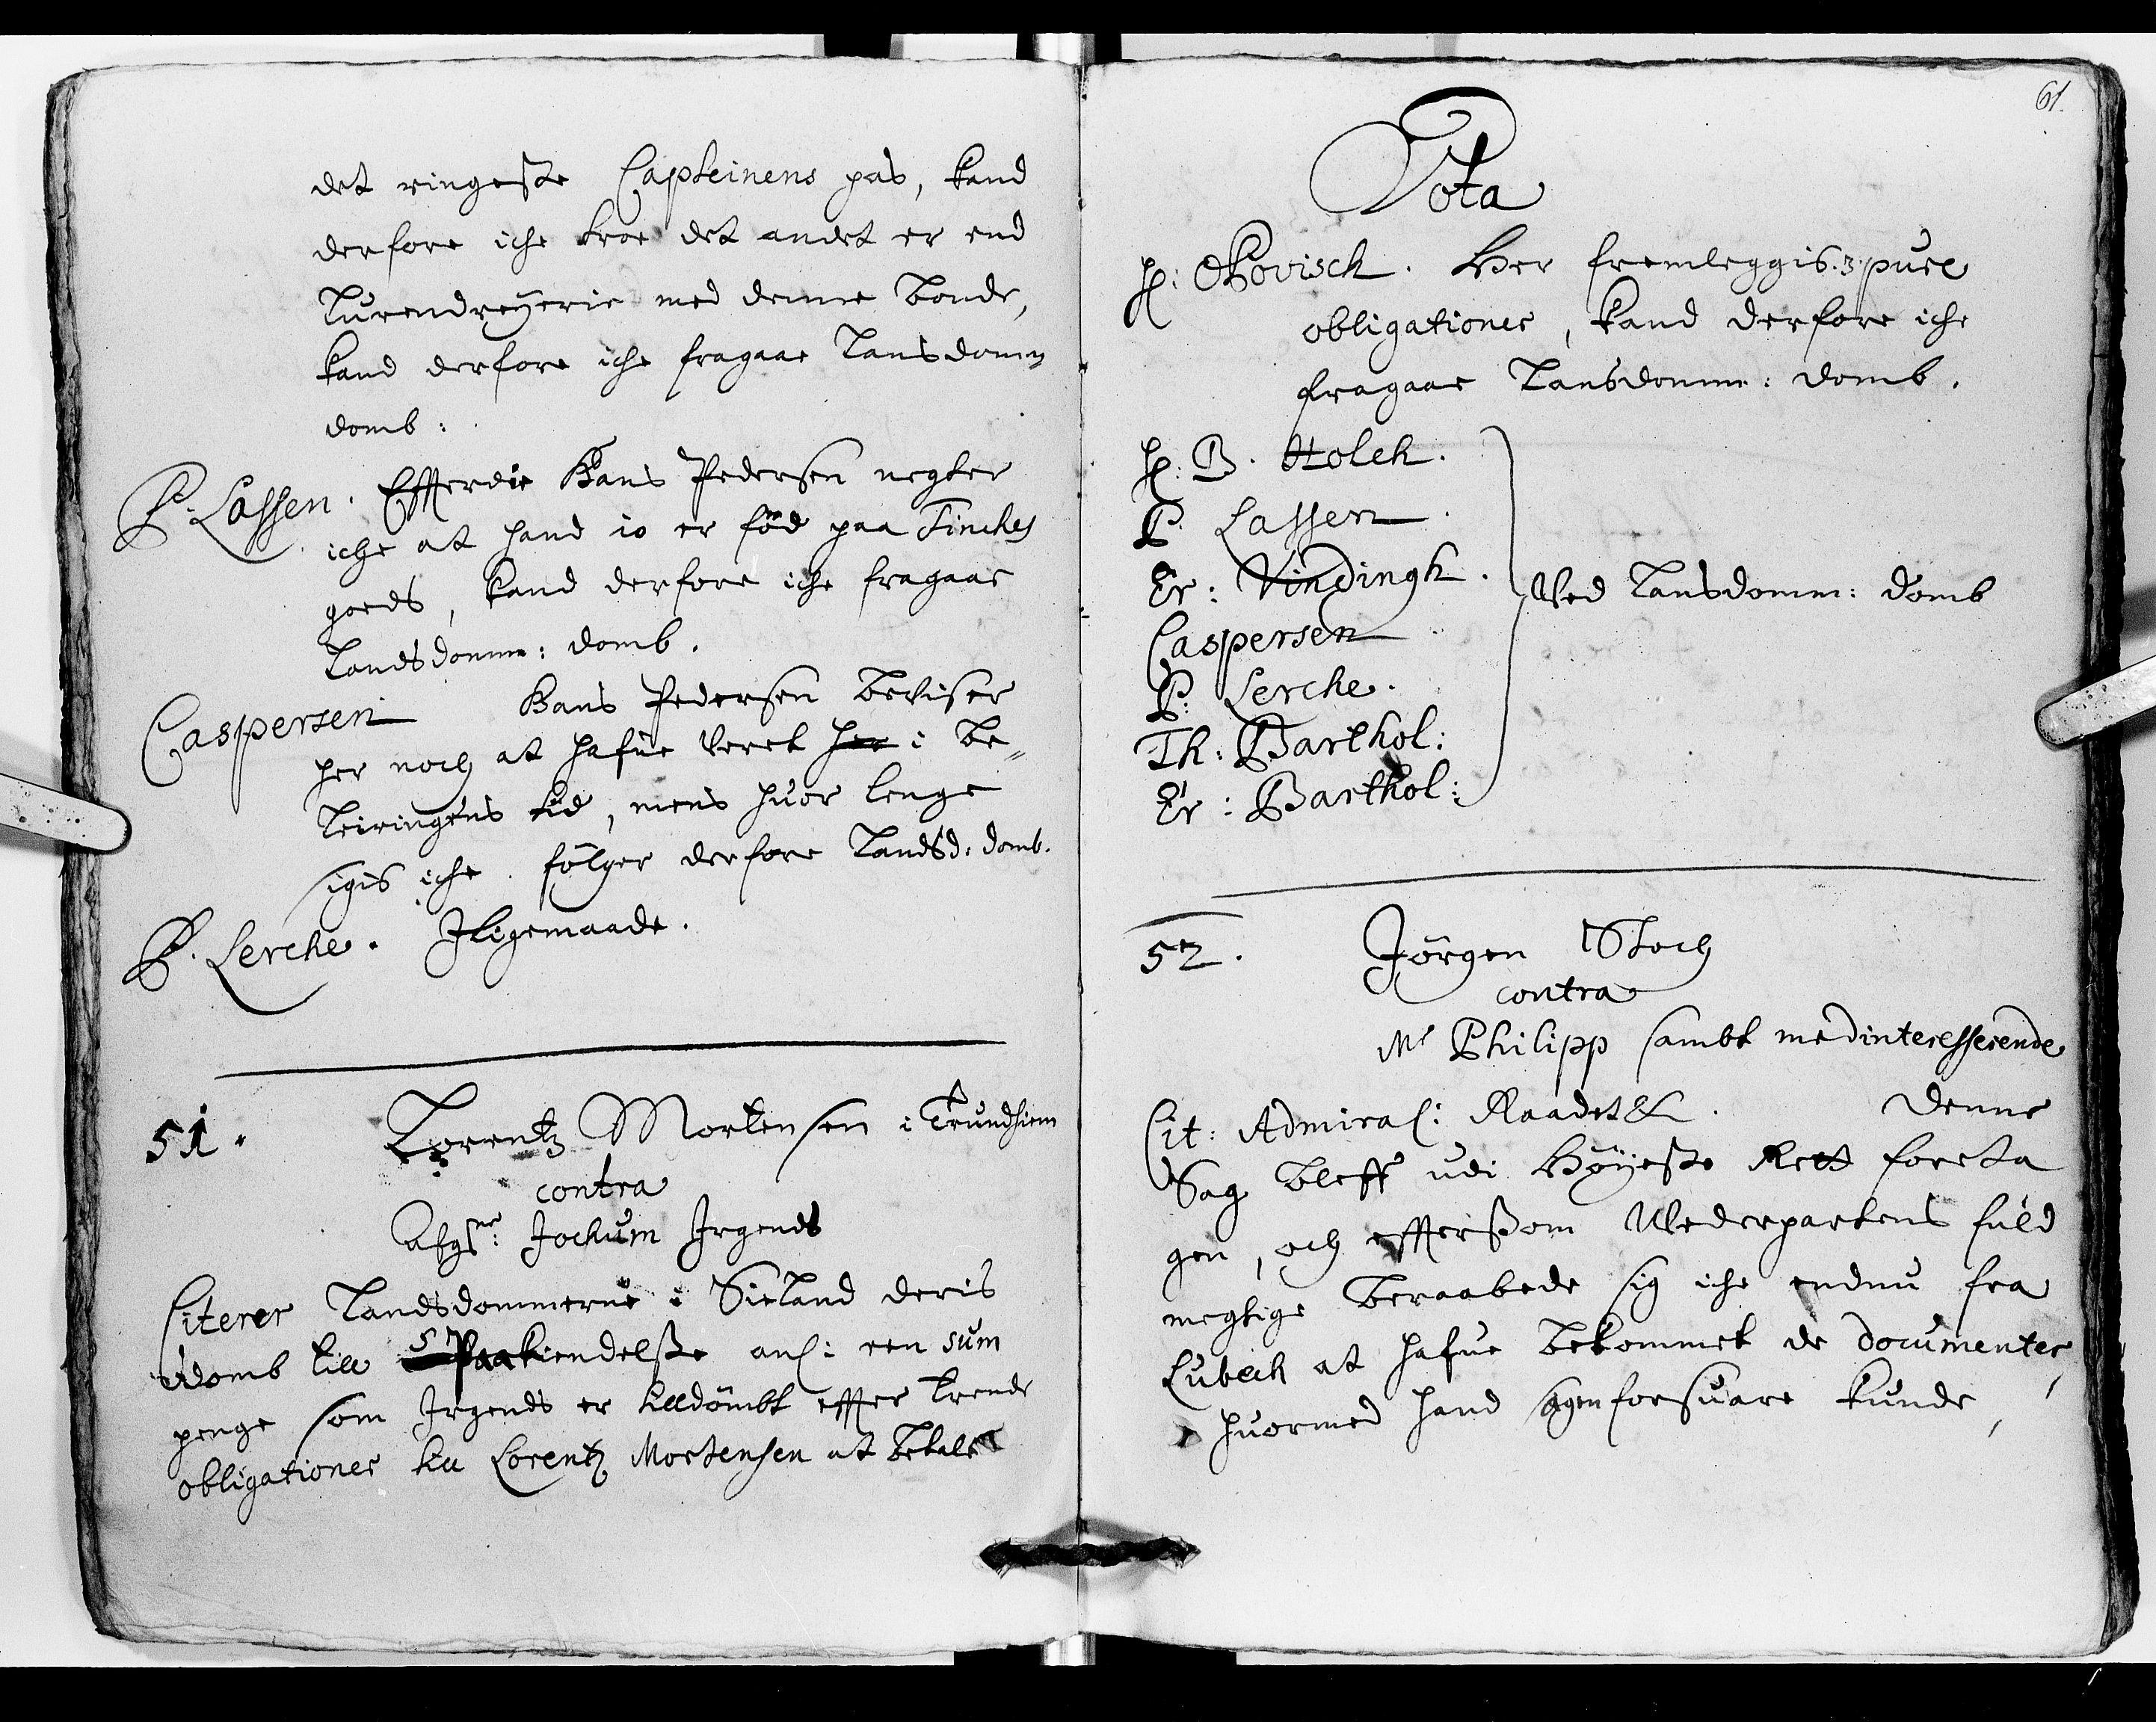 det ringeste Capteinens pas, kand
derfore iche troe det andet er end
Turendreÿerie med denne bonde,
kand derfore iche fragaae Lansdomm
domb:
P: Lassen. Efterdi Hans Pedersen negter
iche at hand io er föd paa Finches
goeds, kand derfore iche fragaae
Landsdomm: domb.
Caspersen Hans Pedersen beviser
her noch at hafue veret her i be„
leiringens tid, mens huor lenge
sigis iche. fölger derfore Landsd: domb.
P. Lerche. Jligemaade.
51. Lorentz Mortensen i Trundhiem
contra
Jochum Jrgends
Citerer Landsdommerne i Sieland deris
domb till Paakiendelsse anl: een sum
penge som Jrgends er tilldömbt effter trende
obligationer till Lorentz Mortensen at betale
61.
Vota
H: Skovisch. Her fremleggis .3. puer
obligationer, kand derfore iche
fragaae Lansdomm: domb.
H: B. Holck.
P. Lassen.
Er: Vindingh. Ved Lansdomm: domb
Caspersen
P: Lerche.
Th: Barthol:
Er: Barthol:
52. Jörgen Stoch
contra
Mr Philipp sambt medinteresserende
Cit: Admiral: Raadet &c. Denne
Sag bleff udi Höÿeste Rett foreta
gen, och effterssom Wederpartens fuld
megtige beraabede sig iche endnu fra
Lubech at hafue bekommet de documenter,
huormed hand sagen forsuare kunde,